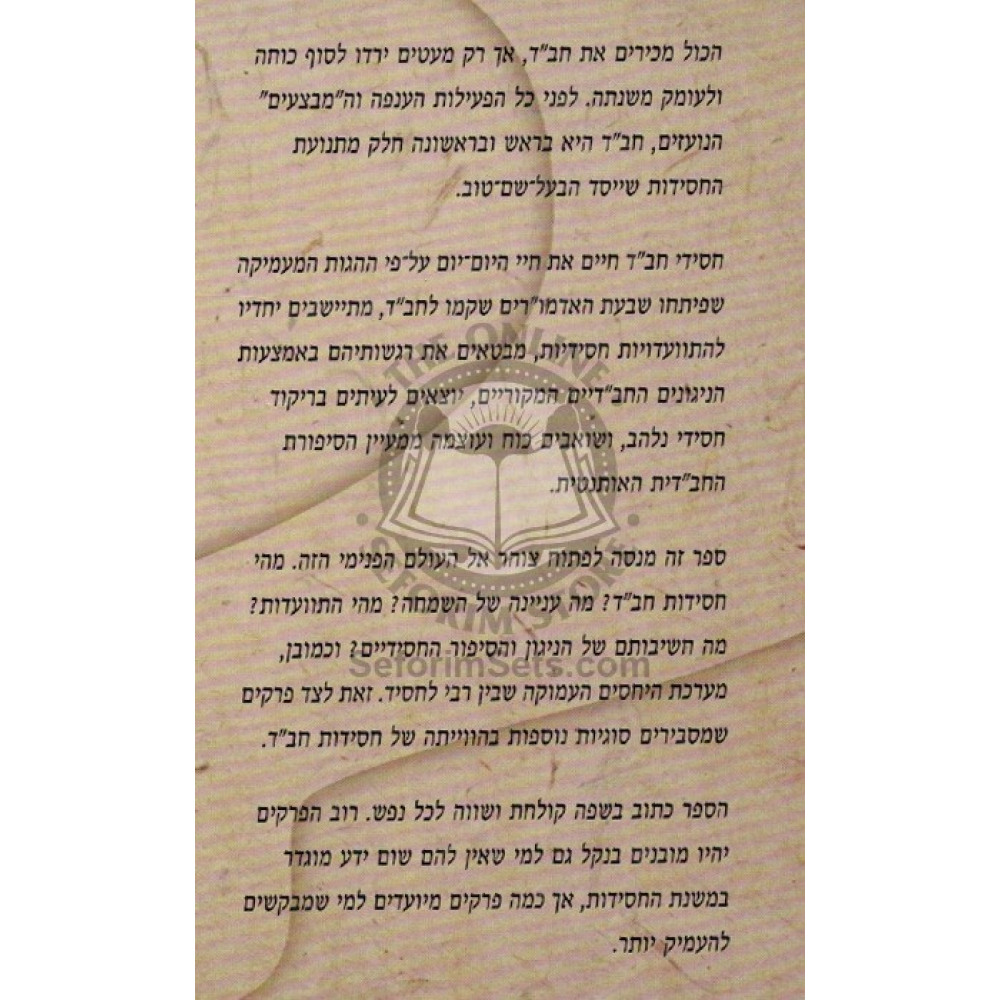 הכול מכירים את חב"ד, אך רק מעטים ירדו לסוף כוחה
ולעומק משנתה. לפני כל הפעילות הענפה וה"מבצעים"
הנועזים, חב"ד היא בראש ובראשונה חלק מתנועת
החסידות שייסד הבעל־שם־טוב.
חסידי חב"ד חיים את חיי היום־יום על־פי ההגות המעמיקה
שפיתחו שבעת האדמו"רים שקמו לחב"ד, מתיישבים יחדיו
להתוועדויות חסידיות, מבטאים את רגשותיהם באמצעות
הניגונים החב"דיים המקוריים, יוצאים לעיתים בריקוד
חסידי נלהב, ושואבים כוח ועוצמה ממעיין הסיפורת
החב"דית האותנטית.
ספר זה מנסה לפתוח צוהר אל העולם הפנימי הזה. מהי
חסידות חב"ד? מה עניינה של השמחה? מהי התוועדות?
מה חשיבותם של הניגון והסיפור החסידיים? וכמובן,
מערכת היחסים העמוקה שבין רבי לחסיד. זאת לצד פרקים
שמסבירים סוגיות נוספות בהווייתה של חסידות חב"ד.
הספר כתוב בשפה קולחת ושווה לכל נפש. רוב הפרקים
יהיו מובנים בנקל גם למי שאין להם שום ידע מוגדר
במשנת החסידות, אך כמה פרקים מיועדים למי שמבקשים
להעמיק יותר.
THE ONLINE
SEFORIM STORE
SeforimSets.com